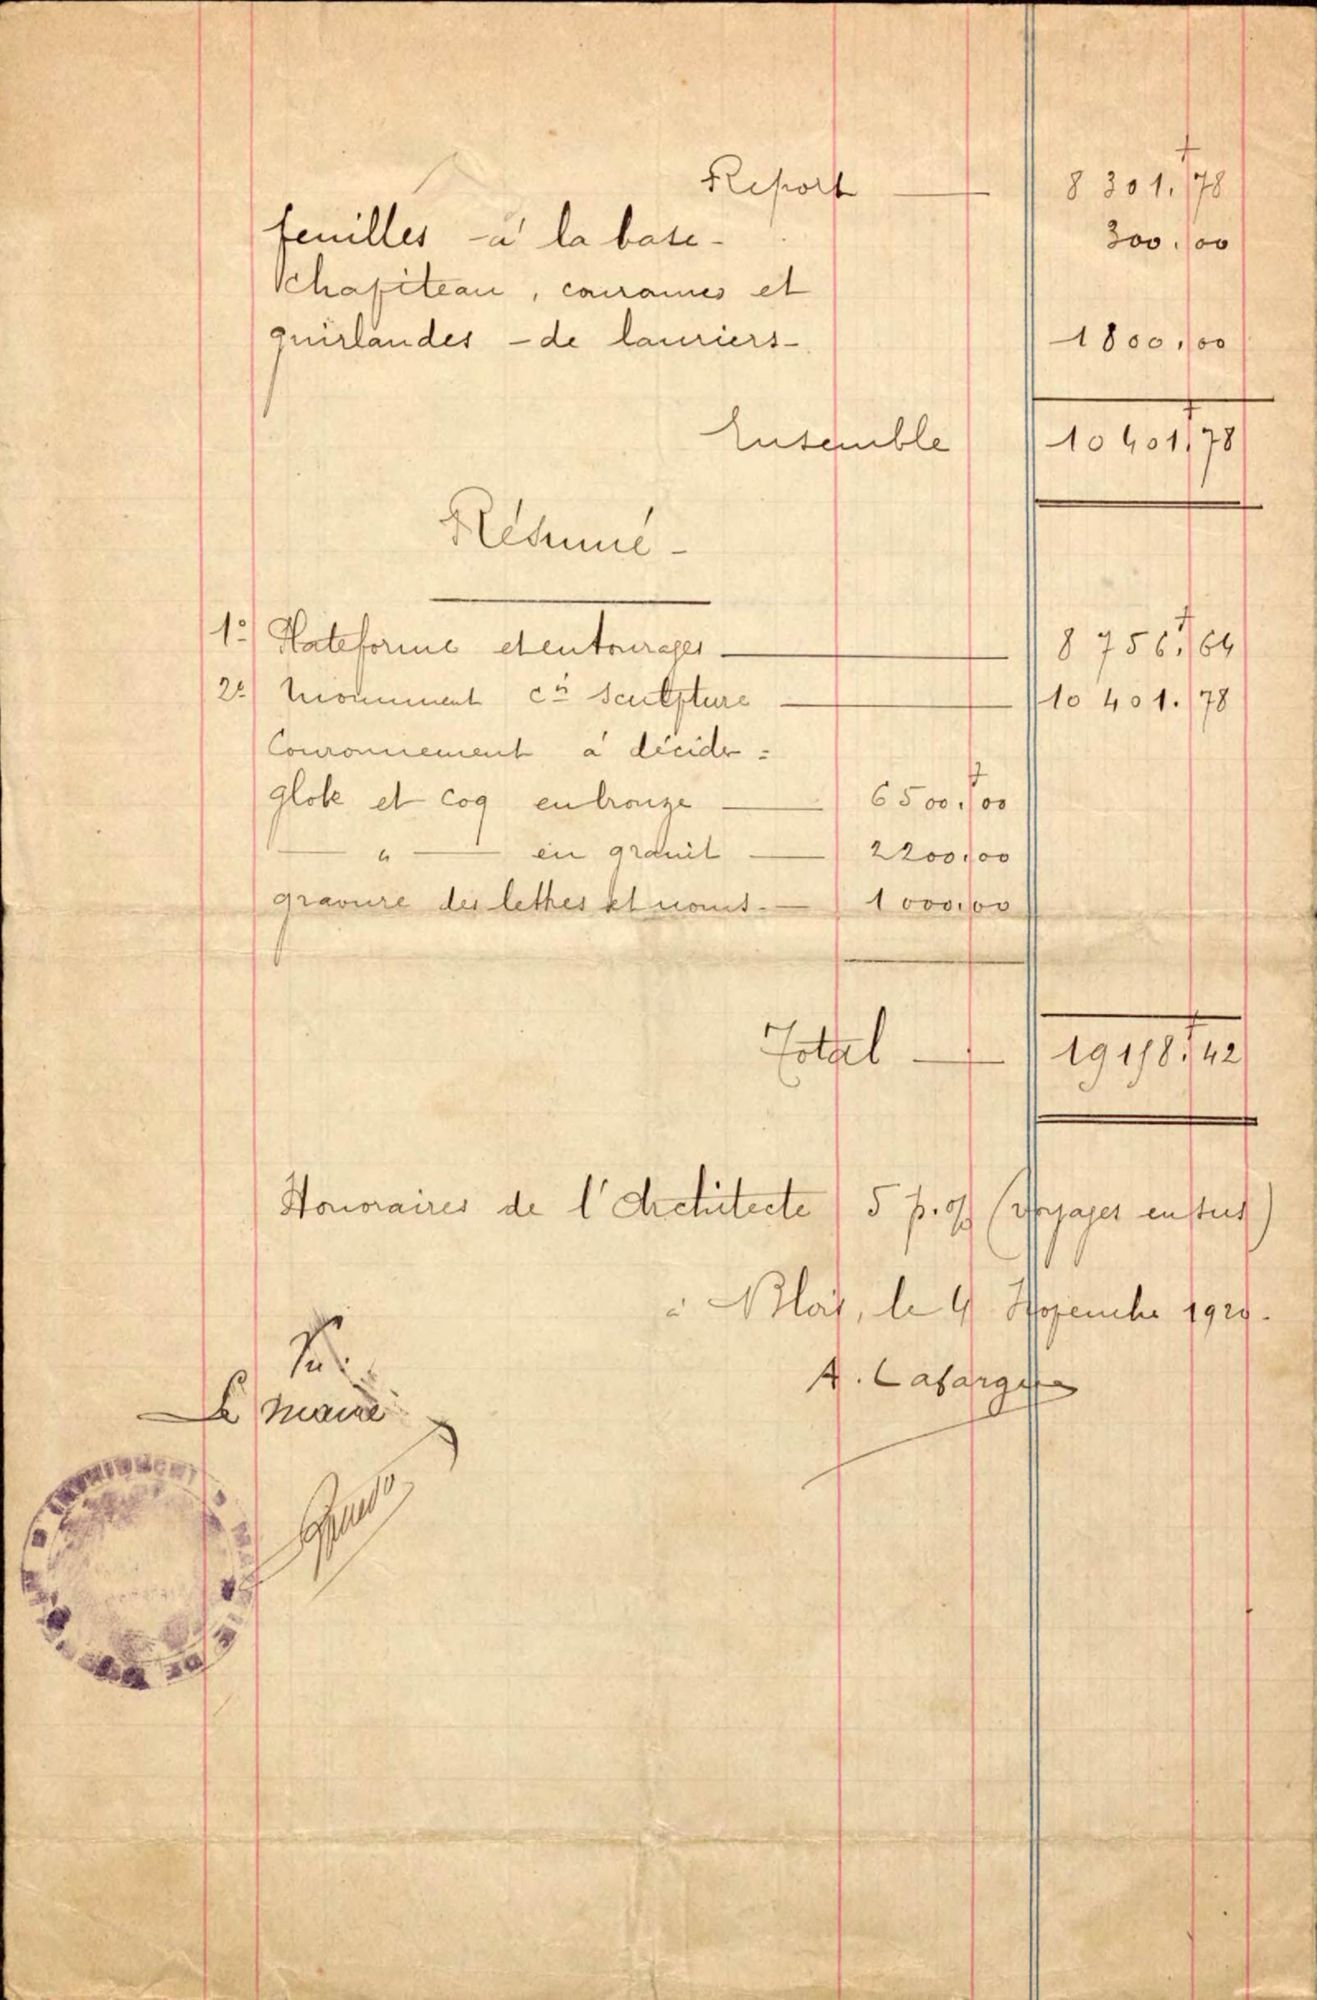 Report — 8 301. 78
feuilles à la base - 300. 00
Chapiteau, couronnes et
guirlandes - de lauriers - 1800. 00
Ensemble 10 401. 78
Résumé -
1º Plateforme et entourages — 8 756. 64
2º Monument cⁿ sculpture — 10 401. 78
Couronnement à décider =
globe et coq en bronze — 6500. 00
— " — en granit — 2200. 00
gravure des lettres et noms. — 1 000. 00
Total — 19158. 42
Honoraires de l'Architecte 5 p. % (voyages en sus)
à Blois, le 4 Novembre 1920.
A. Lafargue
Vu.
Le Maire
DE